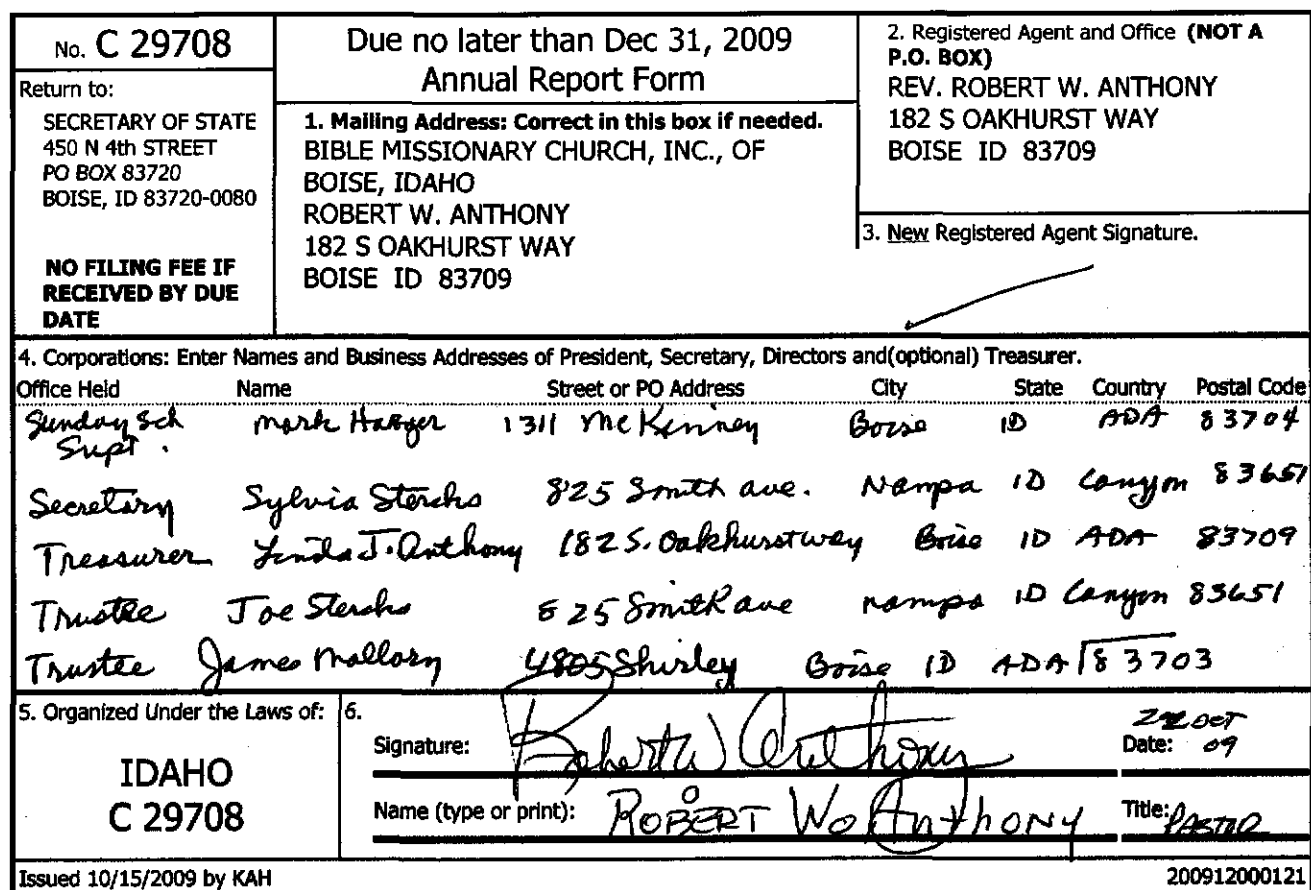 No. C 29708
Return to:
SECRETARY OF STATE
450 N 4th STREET
PO BOX 83720
BOISE, ID 83720-0080
NO FILING FEE IF
RECEIVED BY DUE
DATE
Due no later than Dec 31, 2009
Annual Report Form
1. Mailing Address: Correct in this box if needed.
BIBLE MISSIONARY CHURCH, INC., OF
BOISE, IDAHO
ROBERT W. ANTHONY
182 S OAKHURST WAY
BOISE ID 83709
2. Registered Agent and Office (NOT A
P.O. BOX)
REV. ROBERT W. ANTHONY
182 S OAKHURST WAY
BOISE ID 83709
3. New Registered Agent Signature.
4. Corporations: Enter Names and Business Addresses of President, Secretary, Directors and(optional) Treasurer.
Office Held Name Street or PO Address City State Country Postal Code
Sunday Sch Mark 1311 McKinney Boise ID ADA 83704
Supt.
Secretary Sylvia 825 Smith ave. Nampa ID Canyon 83651
Treasurer Linda J. Anthony 182 S. Oakhurst way Boise ID ADA 83709
Trustee Joe 825 Smith ave Nampa ID Canyon 83651
Trustee James Mallory 4805 Shirley Boise ID ADA 83703
5. Organized Under the Laws of:
IDAHO
C 29708
6.
Signature: Robert W Anthony
Date: 22 OCT 09
Name (type or print): ROBERT W. Anthony Title: PASTOR
Issued 10/15/2009 by KAH 200912000121